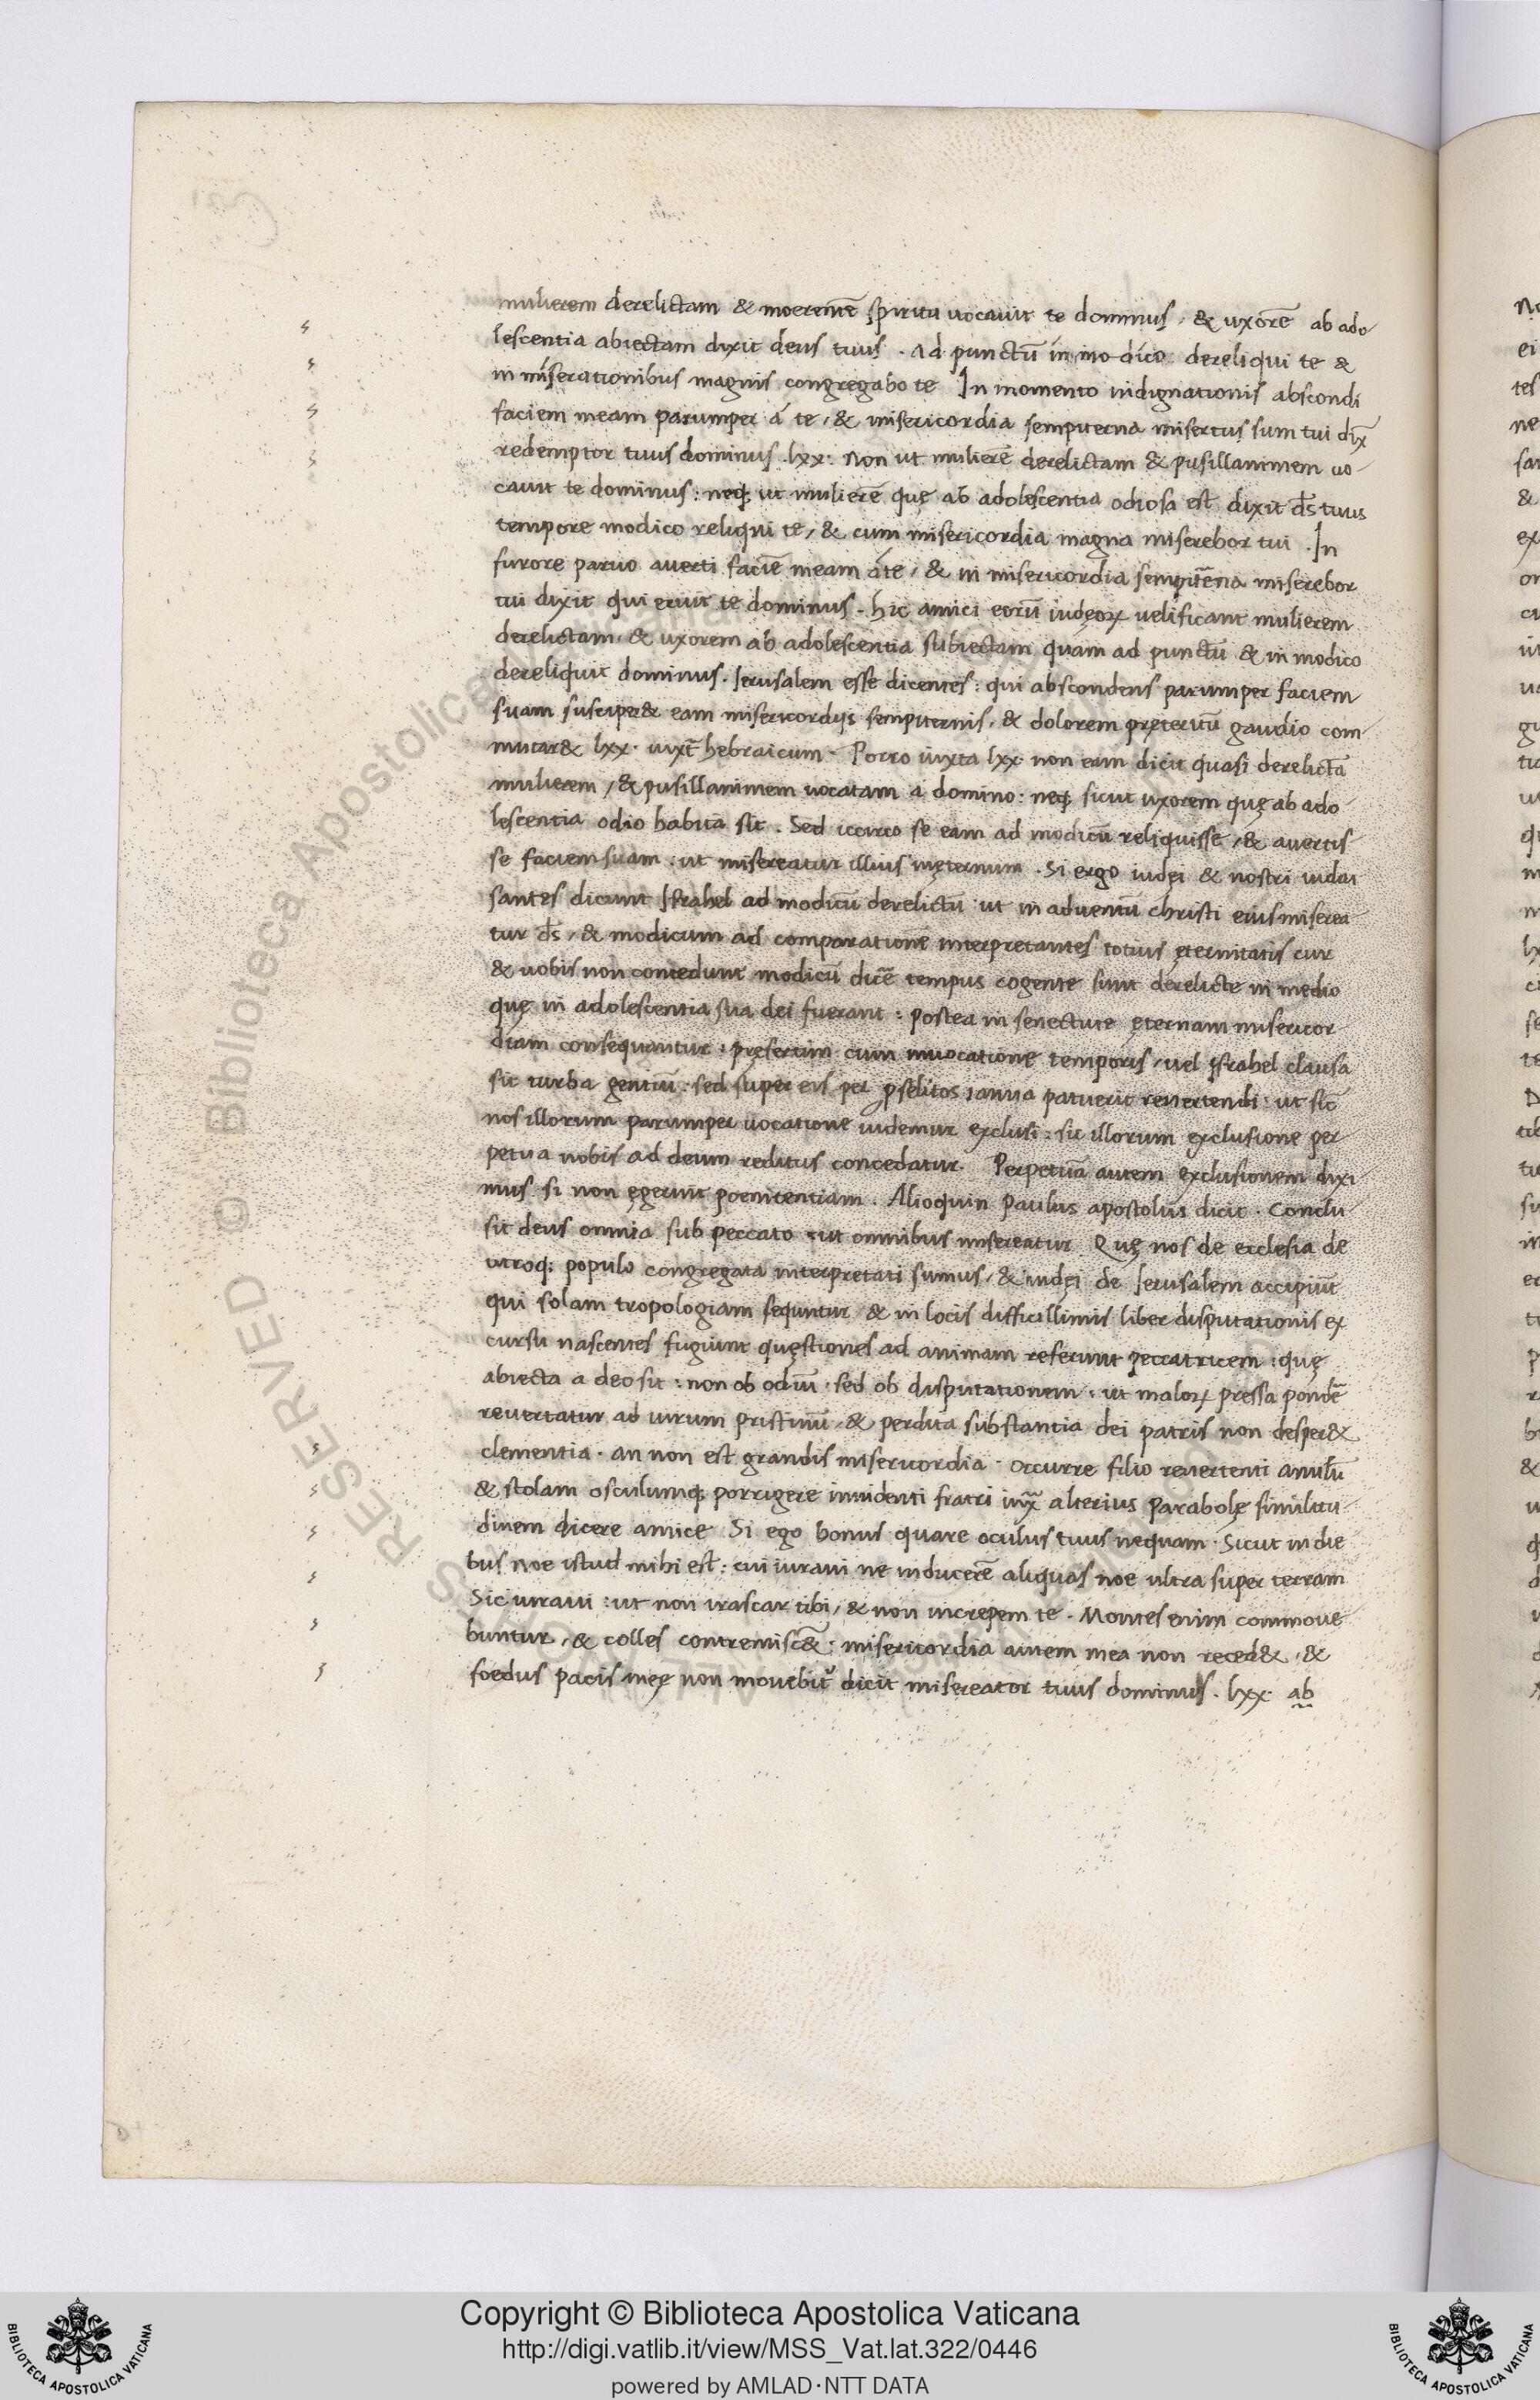 mulierem derelictam & moerentē spiritu uocauit te dominus, & uxorē ab ado-
lescentia abiectam dixit deus tuus. Ad punctū in modico dereliqui te &
in miserationibus magnis congregabo te In momento indignationis abscondi
faciem meam parumper á te, & misericordia sempiterna misertus sum tui dix̄
redemptor tuus dominus. lxx. Non ut mulierē derelictam & pusillanimem uo-
cauit te dominus: neq; ut mulierē quę ab adolescentia odiosa est dixit d̄s tuus
tempore modico reliqui te, & cum misericordia magna miserebor tui. In
furore paruo auerti faciē meam áte, & in misericordia sempit̄ena miserebor
tui dixit qui eruit te dominus. Hic amici eorū iudęoꝝ uelificant mulierem
derelictam, & uxorem ab adolescentia subiectam quam ad punctū & in modico
dereliquit dominus. Ierusalem esse dicentes: qui abscondens parumper faciem
suam susciper& eam misericordijs sempiternis, & dolorem pręteritū gaudio com
mutar& lxx. iuxt̄ hebraicum. Porro iuxta lxx. non eam dicit quasi derelictā
mulierem, & pusillanimem uocatam a domino: neq; sicut uxorem quę ab ado-
lescentia odio habita sit. Sed iccirco se eam ad modicū reliquisse, & auertis
se faciem suam: ut misereatur illius inęternum. Si ergo iudęi & nostri iudai
santes dicunt Israhel ad modicū derelictū ut in aduentū christi eius miserea
tur d̄s, & modicum ad comparationē interpretantes totius ęternitatis cur
& uobis non concedunt modicū dicē tempus cogente sunt derelicte in medio
quę in adolescentia sua dei fuerant: postea in senectute ęternam misericor
diam consequantur: pręsertim cum inuocatione temporis, uel Israhel clausa
sit turba gentiū: sed super eis per ꝓselitos ianua patuerit reuertendi: ut sic̄
nos illorum parumper uocatione uidemur exclusi: sic illorum exclusione per
petua nobis ad deum reditus concedatur. Perpetuā autem exclusionem dixi
mus si non ęgerint poenitentiam. Alioquin Paulus apostolus dicit. Conclu
sit deus omnia sub peccato: ut omnibus misereatur Quę nos de ecclesia de
utroq; populo congregata interpretati sumus, & iudęi de Ierusalem accipiūt
qui solam tropologiam sequntur, & in locis difficillimis liber disputationis ex
cursu nascentes fugiunt quęstiones ad animam referunt peccatricem: quę
abiecta a deo sit: non ob odiū. sed ob disputationem: ut maloꝝ pressa pondē
reuertatur ad uirum pristinū, & perdita substantia dei patris non desper&
clementia. an non est grandis misericordia. occurre filio reuertenti anulū
& stolam osculumq; porrigere inuidenti fratri iux̄ alterius parabolę similitu-
dinem dicere amice Si ego bonus quare oculus tuus nequam. Sicut in die
bus Noe istud mihi est: cui iuraui ne inducerē aliquas noe ultra super terram
Sic iuraui: ut non irascar tibi, & non increpem te. Montes enim commoue
buntur, & colles contremisc̄&: misericordia autem mea non reced&, &
foedus pacis meę non mouebit᷑ dicit misereator tuus dominus. lxx. ab
Copyright © Biblioteca Apostolica Vaticana
http://digi.vatlib.it/view/MSS_Vat.lat.322/0446
powered by AMLAD·NTT DATA